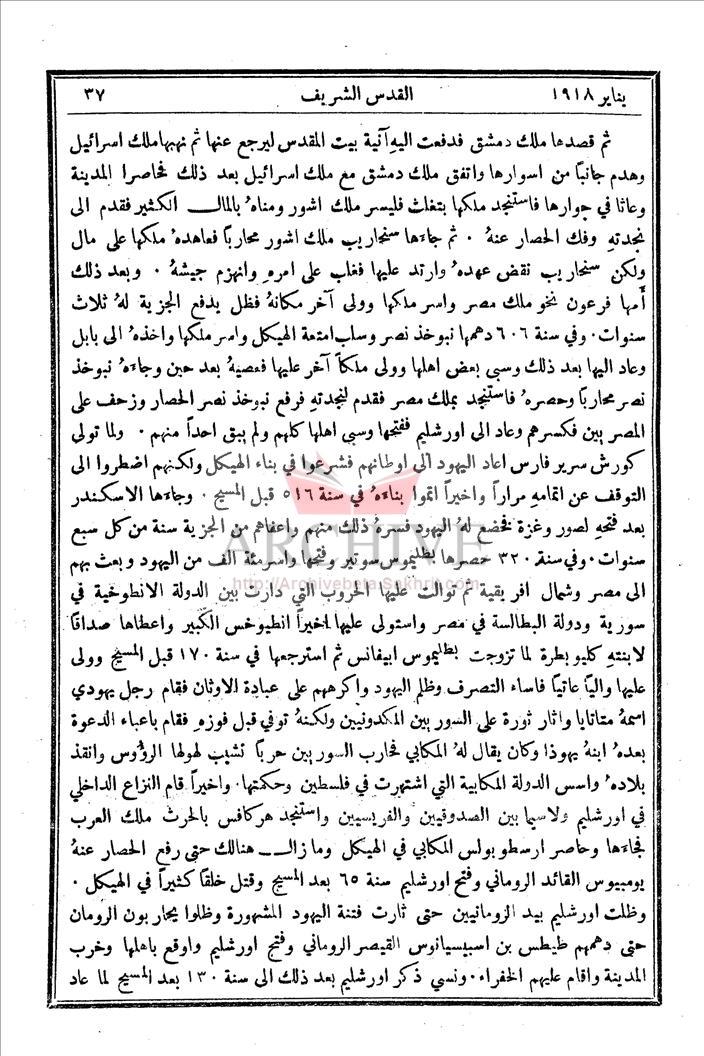 يناير ١٩١٨ القدس الشريف ٣٧
ثم قصدها ملك دمشق فدفعت اليهِ آنية بيت المقدس ليرجع عنها ثم نهبها ملك اسرائيل
وهدم جانبًا من اسوارها واتفق ملك دمشق مع ملك اسرائيل بعد ذلك فحاصرا المدينة
وعاثا في جوارها فاستنجد ملكها بتغلث فليسر ملك اشور ومناهُ بالمال الكثير فقدم الى
نجدتهِ وفك الحصار عنهُ . ثم جاءَها سنحاريب ملك اشور محاربًا فعاهدهُ ملكها على مال
ولكن سنحاريب نقض عهدهُ وارتد عليها فغلب على امرهِ وانهزم جيشهُ . وبعد ذلك
أمها فرعون نخو ملك مصر واسر ملكها وولى آخر مكانهُ فظل يدفع الجزية لهُ ثلاث
سنوات . وفي سنة ٦٠٦ دهمها نبوخذ نصر وسلب امتعة الهيكل واسر ملكها واخذهُ الى بابل
وعاد اليها بعد ذلك وسبى بعض اهلها وولى ملكًا آخر عليها فعصيهُ بعد حين وجاءَهُ نبوخذ
نصر محاربًا وحصرهُ فاستنجد بملك مصر فقدم لنجدتهِ فرفع نبوخذ نصر الحصار وزحف على
المصريين فكسرهم وعاد الى اورشليم ففتحها وسبى اهلها كلهم ولم يبق احداً منهم . ولما تولى
كورش سرير فارس اعاد اليهود الى اوطانهم فشرعوا في بناء الهيكل ولكنهم اضطروا الى
التوقف عن اتمامهِ مراراً واخيراً اتموا بناءَهُ في سنة ٥١٦ قبل المسيح . وجاءَها الاسكندر
بعد فتحهِ لصور وغزة فخضع لهُ اليهود فسرهُ ذلك منهم واعفاهم من الجزية سنة من كل سبع
سنوات . وفي سنة ٣٢٠ حصرها بطليموس سوتير وفتحها واسر مئة الف من اليهود وبعث بهم
الى مصر وشمال افريقية ثم توالت عليها الحروب التي دارت بين الدولة الانطوخية في
سورية ودولة البطالسة في مصر واستولى عليها اخيراً انطيوخس الكبير واعطاها صداقًا
لابنتهِ كليوبطرة لما تزوجت بطليموس ابيفانس ثم استرجعها في سنة ١٧٠ قبل المسيح وولى
عليها واليًا عاتيًا فاساء التصرف وظلم اليهود واكرههم على عبادة الاوثان فقام رجل يهودي
اسمهُ متاتايا واثار ثورة على السوريين المكدونيين ولكنهُ توفي قبل فوزهِ فقام باعباء الدعوة
بعدهُ ابنهُ يهوذا وكان يقال لهُ المكابي فحارب السوريين حربًا تشيب لهولها الرؤوس وانقذ
بلادهُ واسس الدولة المكابية التي اشتهرت في فلسطين وحكمتها . واخيراً قام النزاع الداخلي
في اورشليم ولاسيما بين الصدوقيين والفريسيين واستنجد هركانس بالحرث ملك العرب
فجاءَها وحاصر ارسطوبولس المكابي في الهيكل وما زال هنالك حتى رفع الحصار عنهُ
يومبيوس القائد الروماني وفتح اورشليم سنة ٦٥ بعد المسيح وقتل خلقًا كثيراً في الهيكل .
وظلت اورشليم بيد الرومانيين حتى ثارت فتنة اليهود المشهورة وظلوا يحاربون الرومان
حتى دهمهم طيطس بن اسبيسيانوس القيصر الروماني وفتح اورشليم واوقع باهلها وخرب
المدينة واقام عليهم الخفراء . ونسي ذكر اورشليم بعد ذلك الى سنة ١٣٠ بعد المسيح لما عاد
ARCHIVE
http://Archivebeta.Sakhrit.com